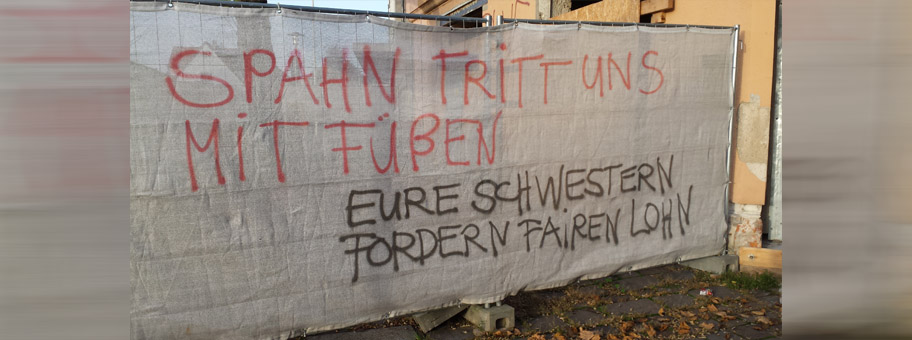 SPAHN TRITT UNS
MiT FÜßEN
EURE SCHWESTERN
FORDERN FAiREN LOHN